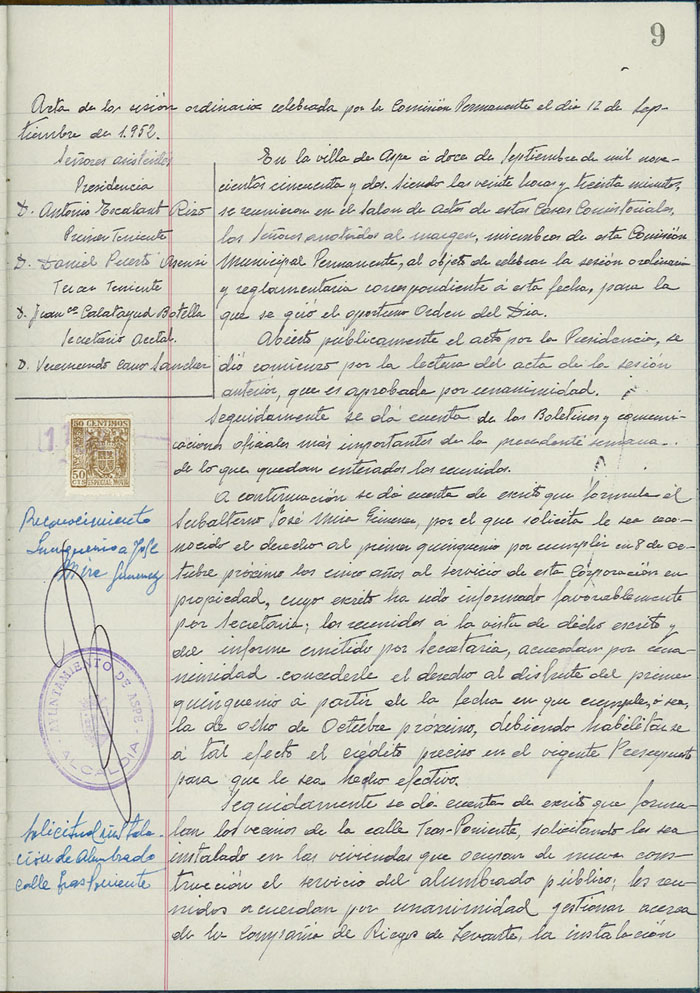 9
Acta de la sesión ordinaria celebrada por la Comisión Permanente el dia 12 de Sep-
tiembre de 1.952.
Señores asistentes
Presidencia
D. Antonio Escalant Rizo
Primer Teniente
D. Daniel Asensi
Tercer Teniente
D. Franco Calatayud Botella
Secretario Acctal.
D. Veremundo Cano Sanchez
En la villa de Aspe á doce de Septiembre de mil nove-
cientos cincuenta y dos. Siendo las veinte horas y treinta minutos,
se reunieron en el Salon de actos de estas Casas Consistoriales,
los Señores anotados al margen, miembros de esta Comisión
Municipal Permanente, al objeto de celebrar la sesión ordinaria
y reglamentaria correspondiente á esta fecha, para la
que se giró el oportuno Orden del Dia.
Abierto publicamente el acto por la Presidencia, se
dió comienzo por la lectura del acta de la sesión
anterior, que es aprobada por unanimidad.
Seguidamente se dá cuenta de los Boletines y comuni-
caciones oficiales más importantes de la precedente semana.
de lo que quedan enterados los reunidos.
50 CENTIMOS
50
CTS ESPECIAL MOVIL
Reconocimiento
Quinquenio a José
Mira Gimenez
A continuación se dá cuenta de escrito que formula el
Subalterno José Mira Gimenez, por el que solicita le sea reco-
nocido el derecho al primer quinquenio por cumplir en 8 de oc-
tubre próximo los cinco años al servicio de esta Corporación en
propiedad, cuyo escrito ha sido informado favorablemente
por Secretaria; los reunidos a la vista de dicho escrito y
del informe emitido por Secretaria, acuerdan por una-
nimidad concederle el derecho al disfrute del primer
quinquenio á partir de la fecha en que cumple, ó sea,
la de ocho de Octubre próximo, debiendo habilitarse
á tal efecto el crédito preciso en el vigente Presupuesto
para que le sea hecho efectivo.
AYUNTAMIENTO DE ASPE
ALCALDIA
Solicitud instala-
ción de Alumbrado
calle Tras Poniente
Seguidamente se dá cuenta de escrito que formu-
lan los vecinos de la calle Tras-Poniente, solicitando les sea
instalado en las viviendas que ocupan de nueva cons-
trucción el servicio del alumbrado público; los reu-
nidos acuerdan por unanimidad gestionar acerca
de la Compañia de Riegos de Levante, la instalación